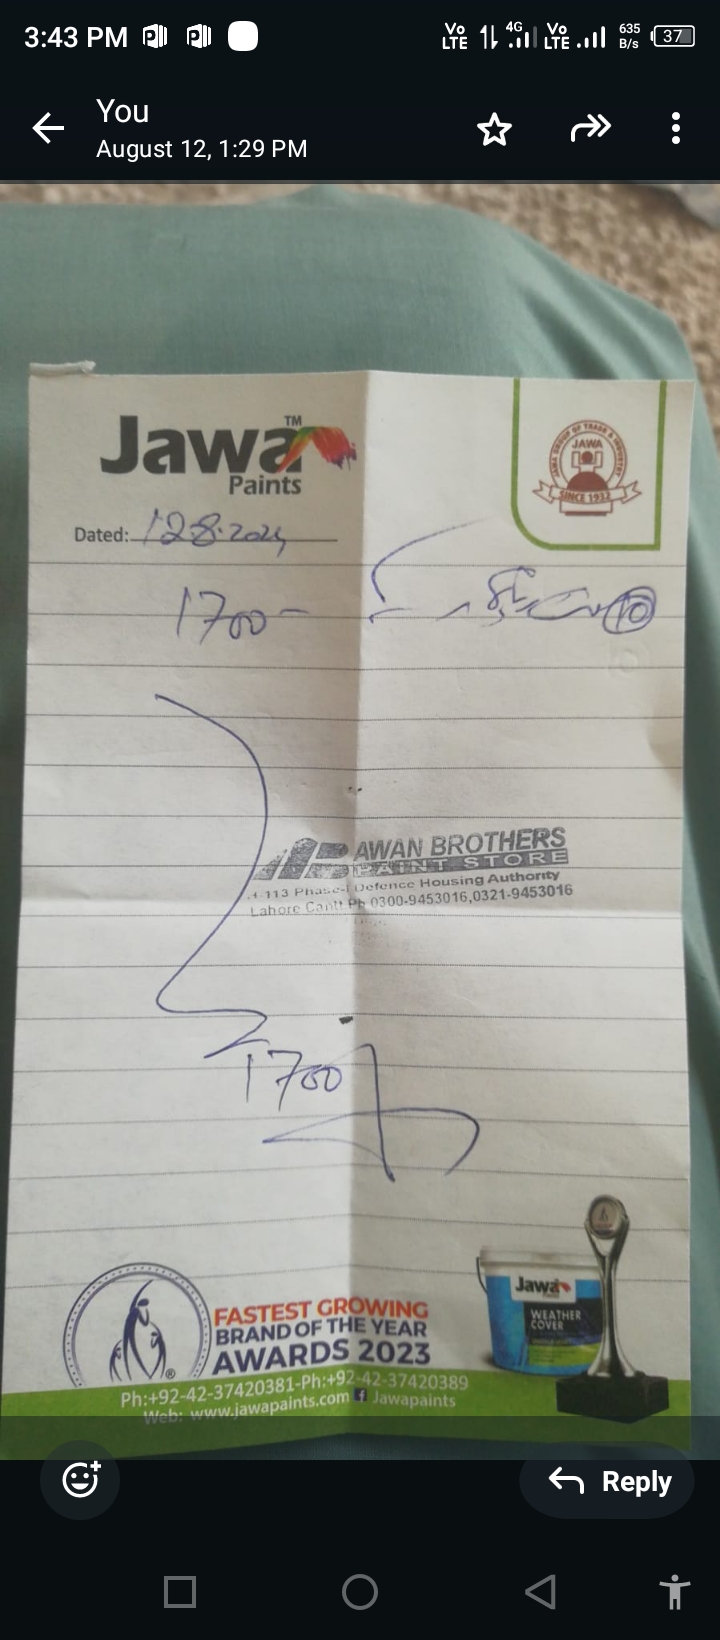 3:43 PM
Vo LTE 4G Vo LTE 635 B/s 37
You
August 12, 1:29 PM
Jawa™
Paints
JAWA GROUP OF TRADE & INDUSTRY
JAWA
SINCE 1932
Dated: 12.8.2024
1700
10
AB AWAN BROTHERS
PAINT STORE
-113 Phase-I Defence Housing Authority
Lahore Cantt Ph 0300-9453016,0321-9453016
1700
FASTEST GROWING
BRAND OF THE YEAR
AWARDS 2023
®
Jawa
WEATHER
COVER
Ph:+92-42-37420381-Ph:+92-42-37420389
Web: www.jawapaints.com Jawapaints
Reply